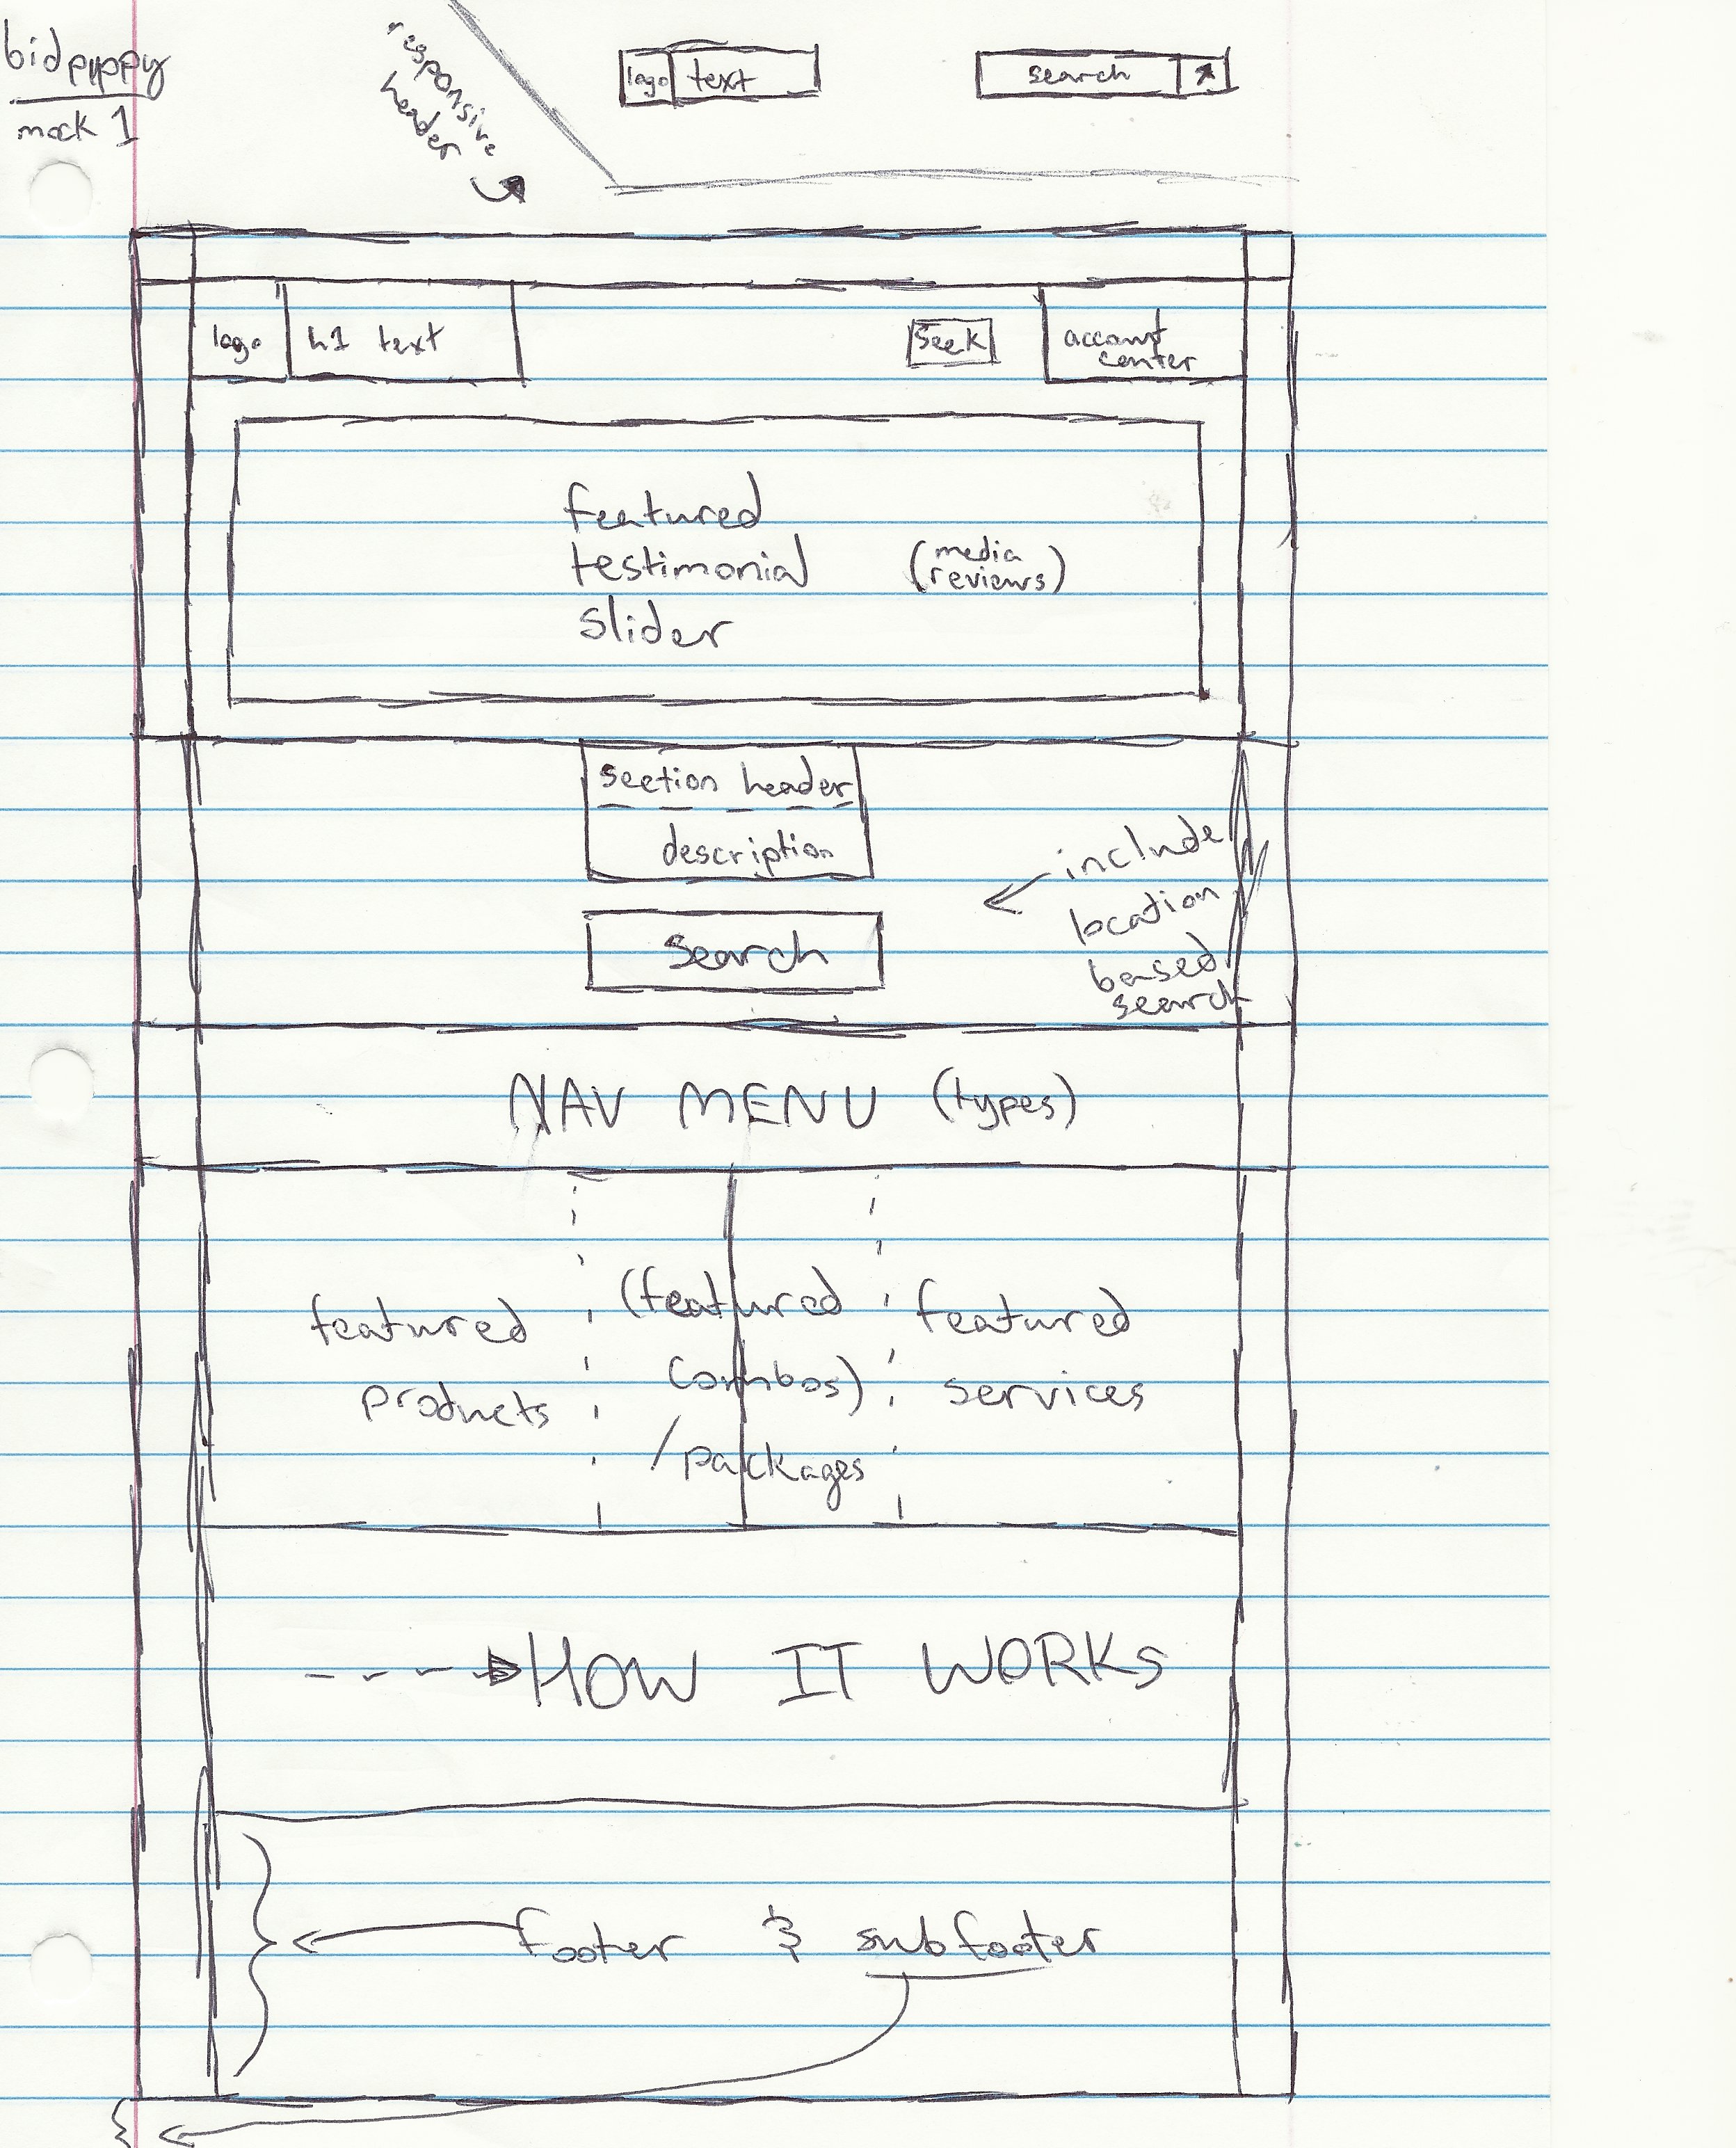 bidpyppy
mock 1
responsive
header
logo text
search
logo
h1 text
Seek
account
center
featured
testimonial
slider
(media
reviews)
section header
description
search
include
location
based
search
NAV MENU (types)
featured
products
(featured
combos)
/packages
featured
services
HOW IT WORKS
footer & subfooter